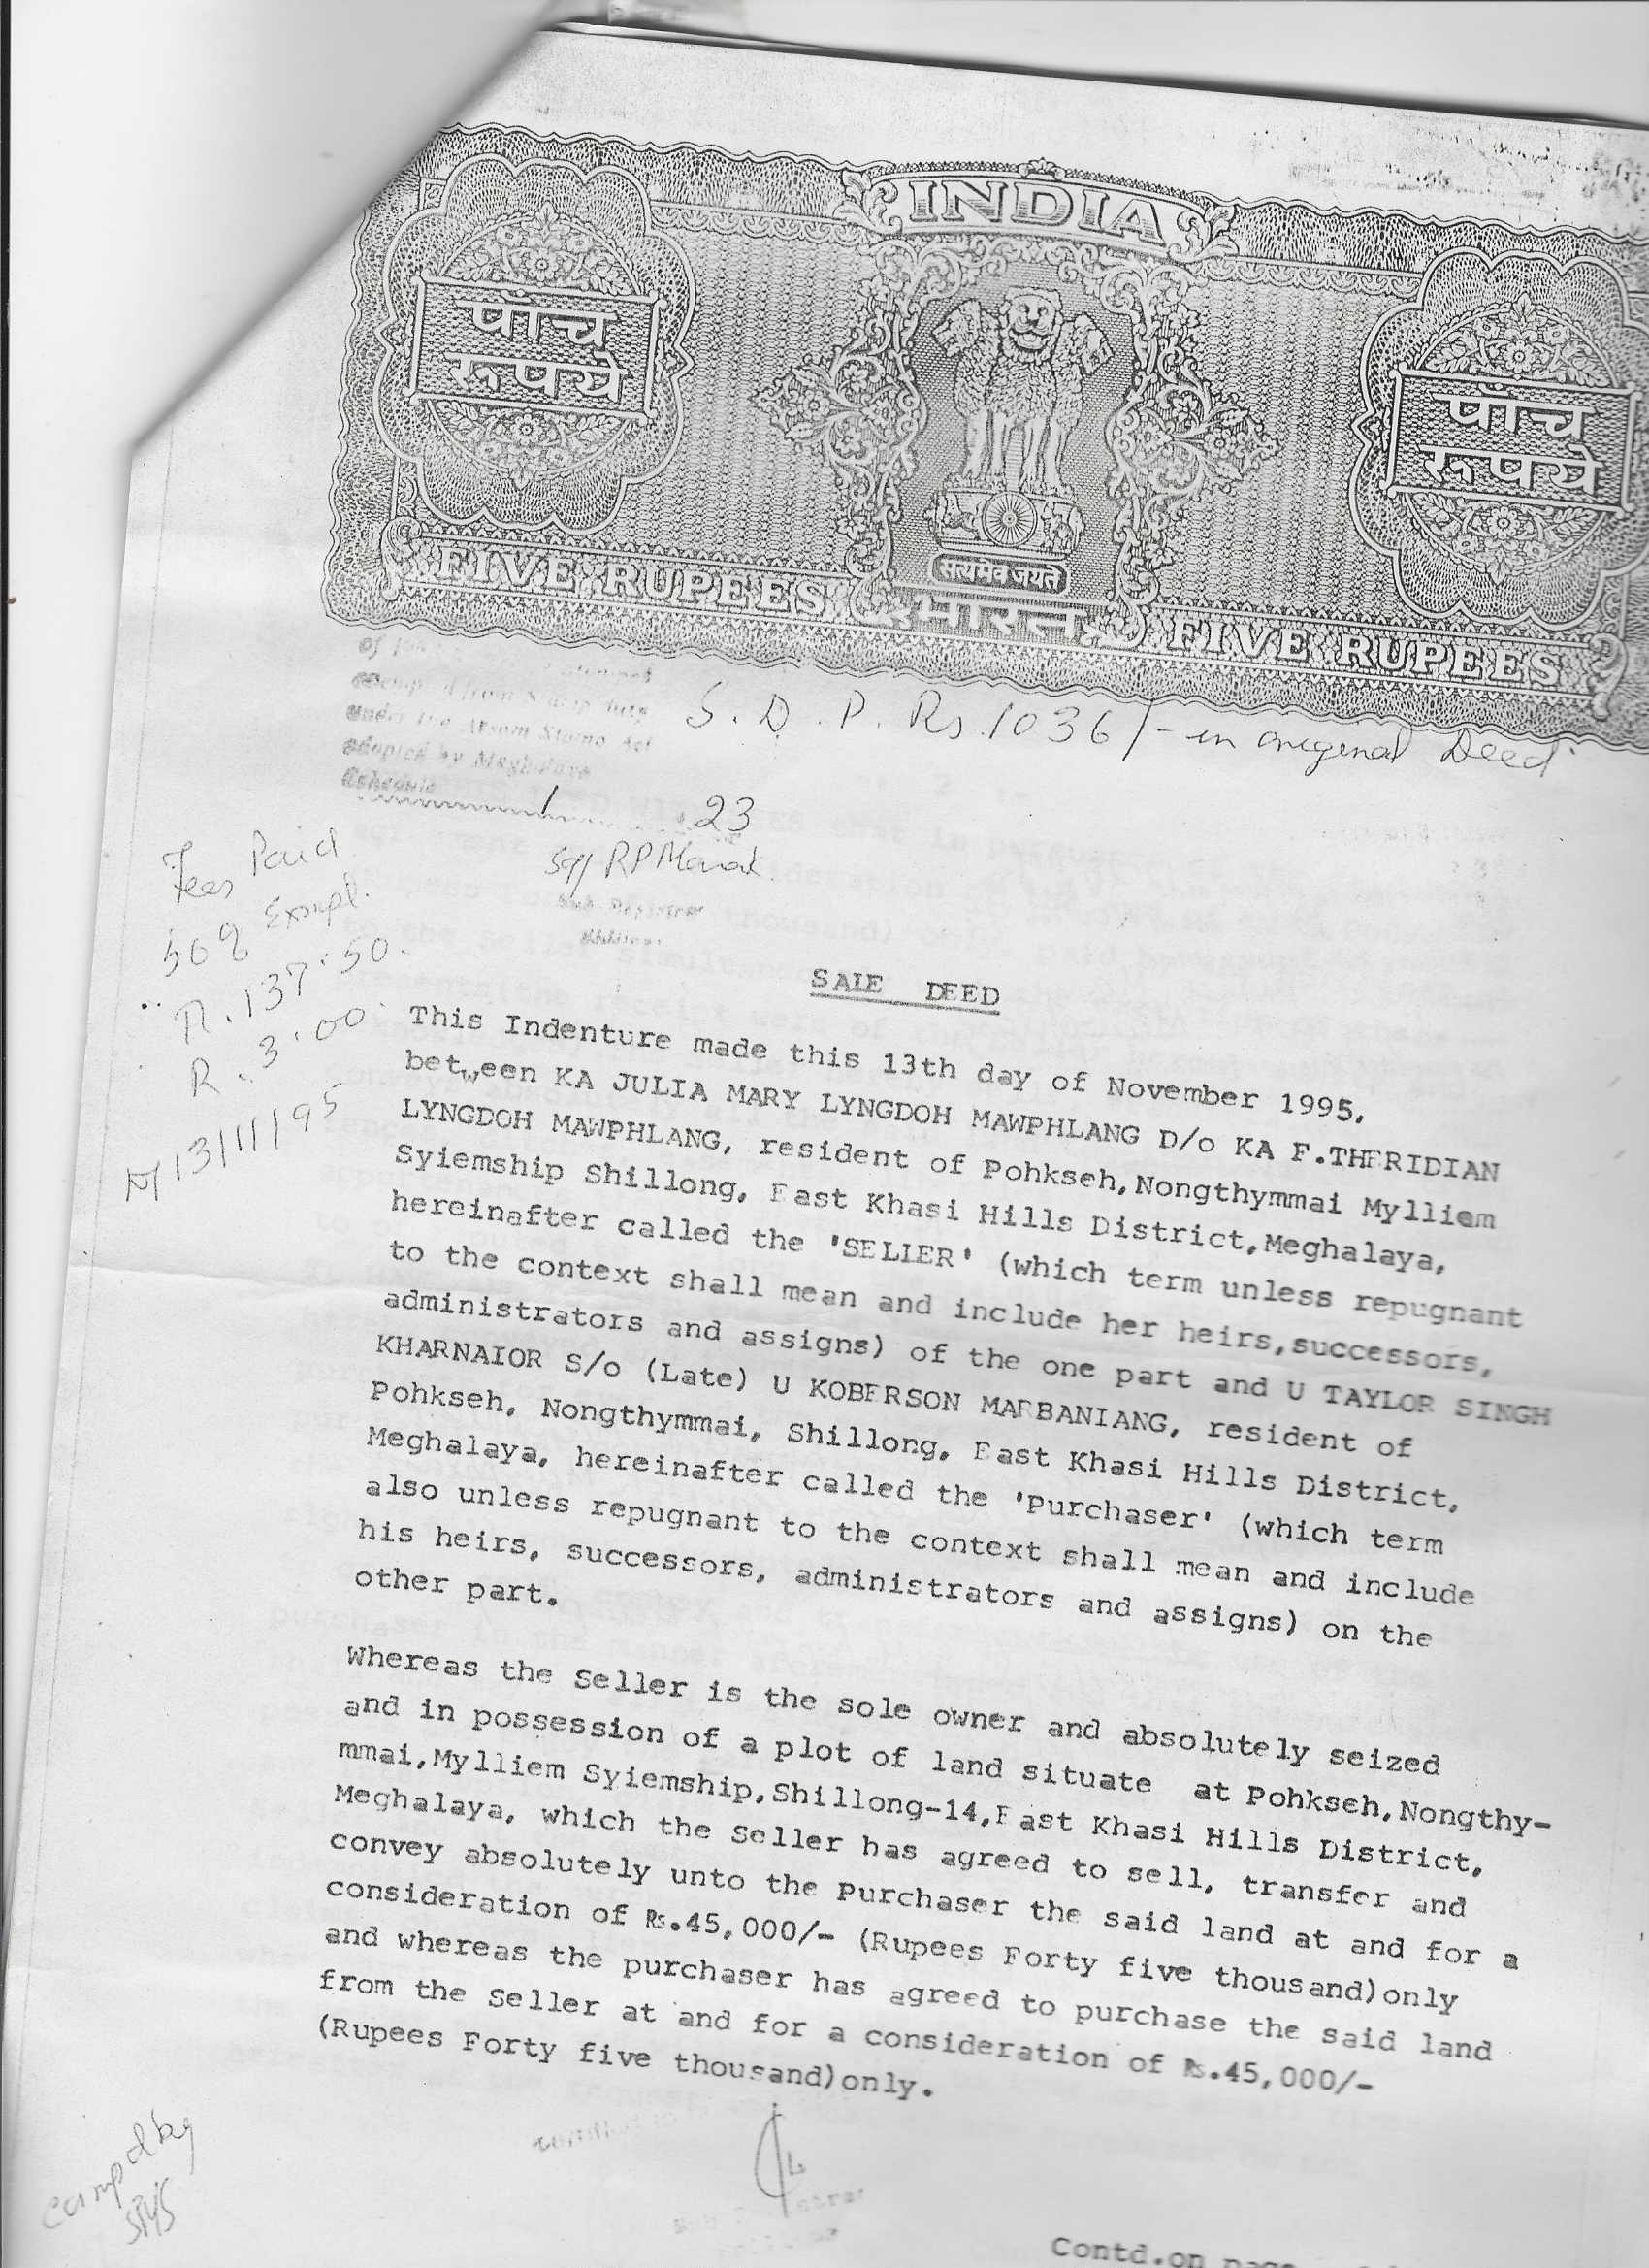 INDIA
पाँच
रूपये
पाँच
रूपये
सत्यमेव जयते
FIVE RUPEES भारत FIVE RUPEES
S. D. P. Rs. 1036/- in original Deed
under the Assam Stamp Act
adopted by Meghalaya
Schedule 1 23
Sub Registrar
Fees Paid
R. 137.50.
R. 3.00
13/11/95
SALE DEED
This Indenture made this 13th day of November 1995,
between KA JULIA MARY LYNGDOH MAWPHLANG D/o KA F.THERIDIAN
LYNGDOH MAWPHLANG, resident of Pohkseh,Nongthymmai Mylliem
Syiemship Shillong, East Khasi Hills District,Meghalaya,
hereinafter called the 'SELLER' (which term unless repugnant
to the context shall mean and include her heirs,successors,
administrators and assigns) of the one part and U TAYLOR SINGH
KHARNAIOR S/o (Late) U KOBERSON MARBANIANG, resident of
Pohkseh, Nongthymmai, Shillong, East Khasi Hills District,
Meghalaya, hereinafter called the 'Purchaser' (which term
also unless repugnant to the context shall mean and include
his heirs, successors, administrators and assigns) on the
other part.
Whereas the Seller is the sole owner and absolutely seized
and in possession of a plot of land situate at Pohkseh,Nongthy-
mmai,Mylliem Syiemship,Shillong-14,East Khasi Hills District,
Meghalaya, which the Seller has agreed to sell, transfer and
convey absolutely unto the Purchaser the said land at and for a
consideration of Rs.45,000/- (Rupees Forty five thousand)only
and whereas the purchaser has agreed to purchase the said land
from the Seller at and for a consideration of Rs.45,000/-
(Rupees Forty five thousand)only.
Compd by
Contd.on page